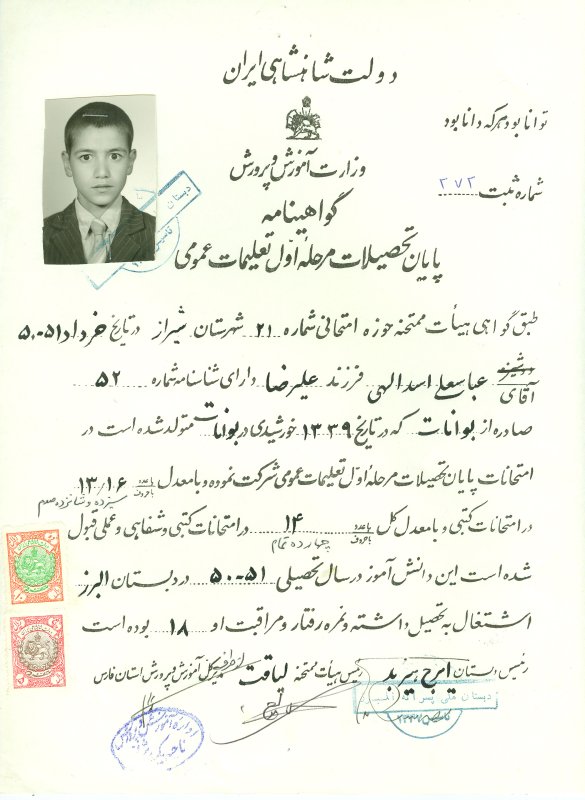 دولت شاهنشاهی ایران
توانا بود هر که دانا بود
وزارت آموزش و پرورش
شماره ثبت ۲۷۲
گواهینامه
پایان تحصیلات مرحلهٔ اول تعلیمات عمومی
طبق گواهی هیأت ممتحنه حوزه امتحانی شماره ۲۱ شهرستان شیراز در تاریخ خرداد ۵۱-۵۰
دوشیزه
آقای عباسعلی اسدالهی فرزند علیرضا دارای شناسنامه شماره ۵۲
صادره از بوانات که در تاریخ ۱۳۳۹ خورشیدی در بوانات متولد شده است در
امتحانات پایان تحصیلات مرحله اول تعلیمات عمومی شرکت نموده و با معدل باعدد باحروف ۱۳/۱۶
سیزده و شانزده صدم
در امتحانات کتبی و با معدل کل باعدد باحروف ۱۴ در امتحانات کتبی و شفاهی و عملی قبول
چهارده تمام
شده است این دانش آموز در سال تحصیلی ۵۱-۵۰ در دبستان البرز
اشتغال به تحصیل داشته و نمره رفتار و مراقبت او ۱۸ بوده است
رئیس دبستان ایرج رئیس هیأت ممتحنه لیاقت از طرف مدیرکل آموزش و پرورش استان فارس
دبستان ملی پسرانه البرز